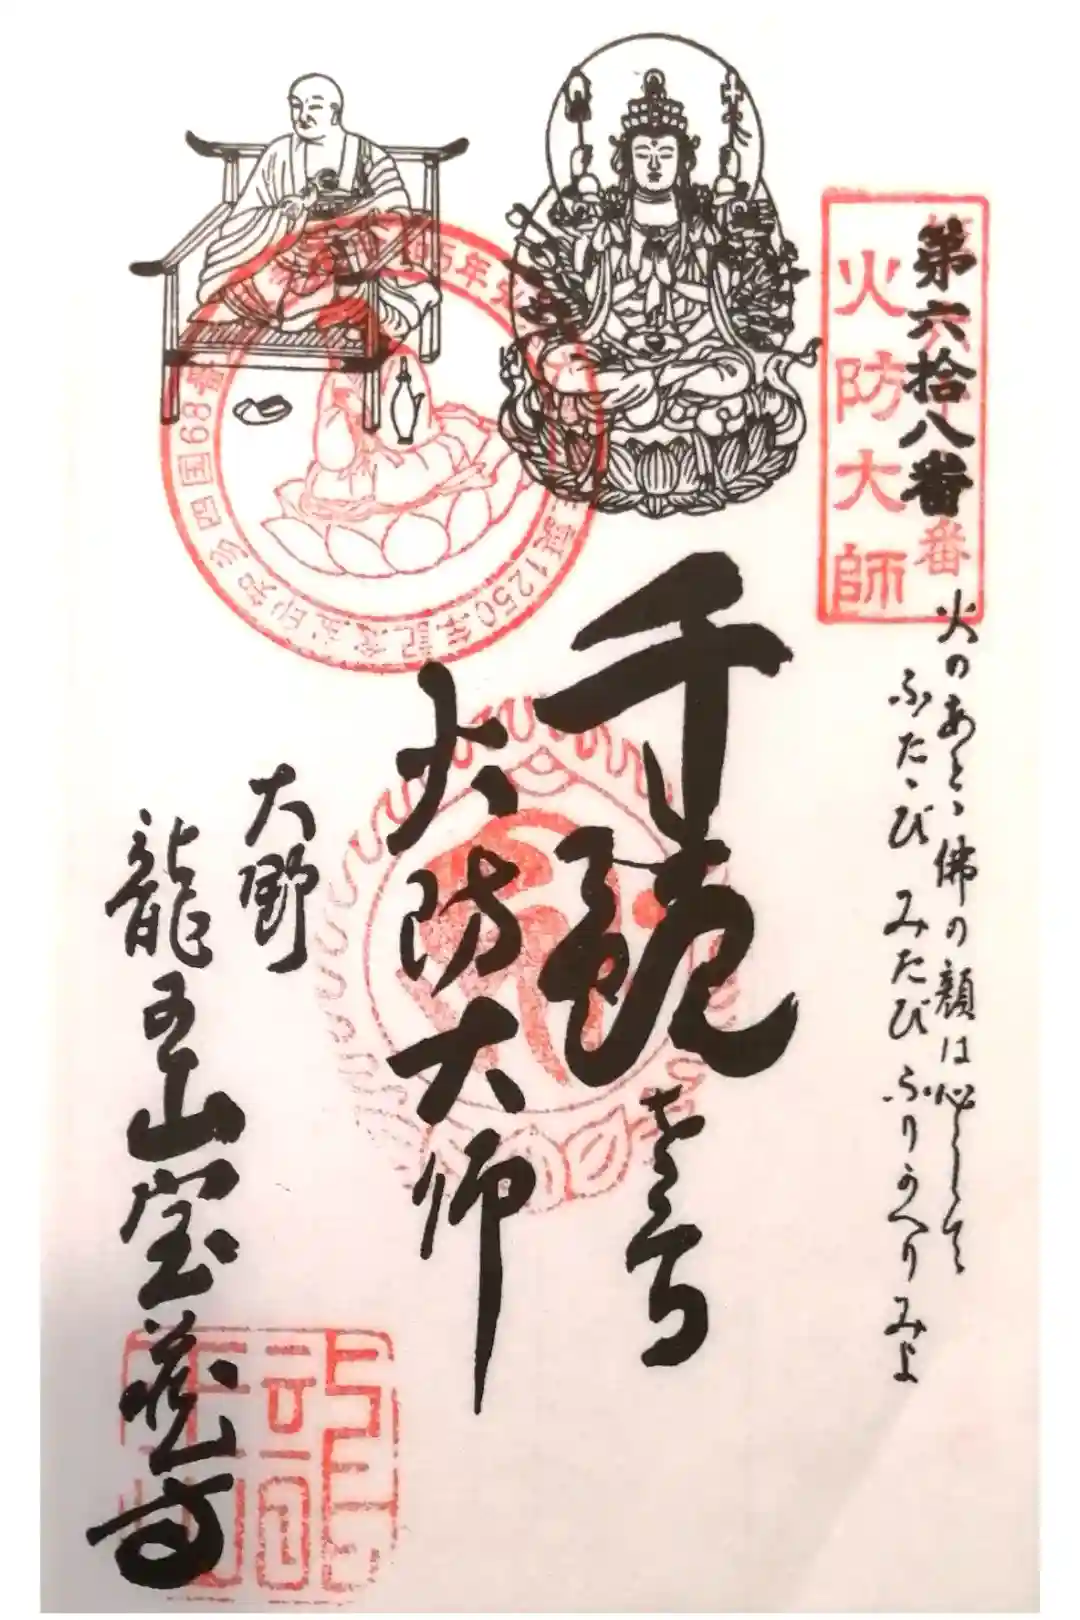 第六拾八番
火防大師
火のあとゝ佛の顔は心して
ふたゝび みたび ふりかへりみよ
千観音
火防大師
大野
龍王山宝蔵寺
知多四国68番
1250年記念宝印